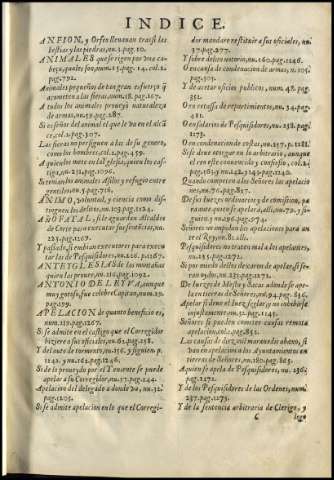 INDICE.
ANFION, y Orfeo llevavan trassi las
bestias y las piedras, nu.1.pag.10.
ANIMALES que se rigen por una ca-
beça, quales son, num.15.pag.14. col.2.
pag.791.
Animales pequeños de tan gran esfuerço
acometen a los fieros, num.18.pag.167.
A todos los animales proveyó naturaleza
de armas, nu.57.pag.287.
Si es señor del animal el que le da en el alca
nce, col.2.pag.307.
Las fieras no persiguen a las de su genero,
como los hombres, col.2.pag.459.
A quien los mete en la Iglesia, quien los cas-
tiga, nu.131.pag.1096.
Si tenian los animales asilos y refugio entre
gentiles, nu.5.pag.716.
ANIMO, voluntad, y ciencia como dis-
AÑOFATAL, si le aguardan Alcaldes
de Corte para executar sus sentencias, nu.
221.pag.1267.
Y passado, si embian executores para execu-
tar las de Pesquisidores, nu.226.pag.1267.
ANTEIGLESIAS de las montañas
quien las provee, nu.116.pag.1092.
ANTONIO DE LEYVA, aunque
muy gotoso, fue celebre Capitan, num.29.
pag.159.
APELACION de quanto beneficio es,
num.213.pag.1267.
Si se admite en el castigo que el Corregidor
hiziere a sus oficiales, nu.62.pag.258.
Y del auto de tormento, nu.16.y siguien.p.
1143. y nu.163.pag.1246.
Si de lo proveydo por el Teniente se puede
apelar a su Corregidor, nu.57.pag.244.
Apelacion del delegado a donde va, nu.32.
pag.1205.
Si se admite apelacion en lo que el Corregi-
dor mandare restituir a sus oficiales, nu.
37.pag.277.
Y sobre delito notorio, nu.160.pag.1246.
O en causa de condenacion de armas, n.105
pag.505.
Y de actas oficios publicos, num.48.pag.
352.
O en retassa de repartimientos, num.34.pag.
481.
O en salarios de Pesquisidores, nu.258.pag.
1273.
O en condenacion de costas, nu.257.p.1281.
Si se deve otorgar en lo arbitrario, aunque
el reo este convencido y confesso, col.2.
pag.163, nu.142. y 149. pag.1240
Quando competen a los Señores las apelacio-
nes, nu.76.pag.827.
De sus juezes ordinarios y de comission, pa
ra ante quien se apelará, alli, nu.79. y si-
guien. y nu.96.pag.974.
Señores no impiden las apelaciones para an
te el Rey, nu.81.alli.
Pesquisidores no traten mal a los apelantes,
nu.235.pag.1271.
Si por miedo del los dexaren de apelar, si so-
bre tiempo, nu.231.pag.1270.
De los juezes de Mesta y Sacas adonde se ape-
la en tierras de Señores, nu.94.pag.836.
Apelar bien del juez seglar y no inhibirse
injustamente, nu.31.pag.1145.
Señores si pueden cometer causas remiti
apelacion, col.2.pag.832.
Las causas de diez mil maravedis abaxo, si
van en apelacion a los Ayuntamientos en
tierras de Señores, nu.180.pag.865.
A quien se apela de Pesquisidores, nu. 236.
pag.1272.
Y de los Pesquisidores de las Ordenes, num.
237.pag.1275.
Y de la sentencia arbitraria de Clerigo, y
C lego